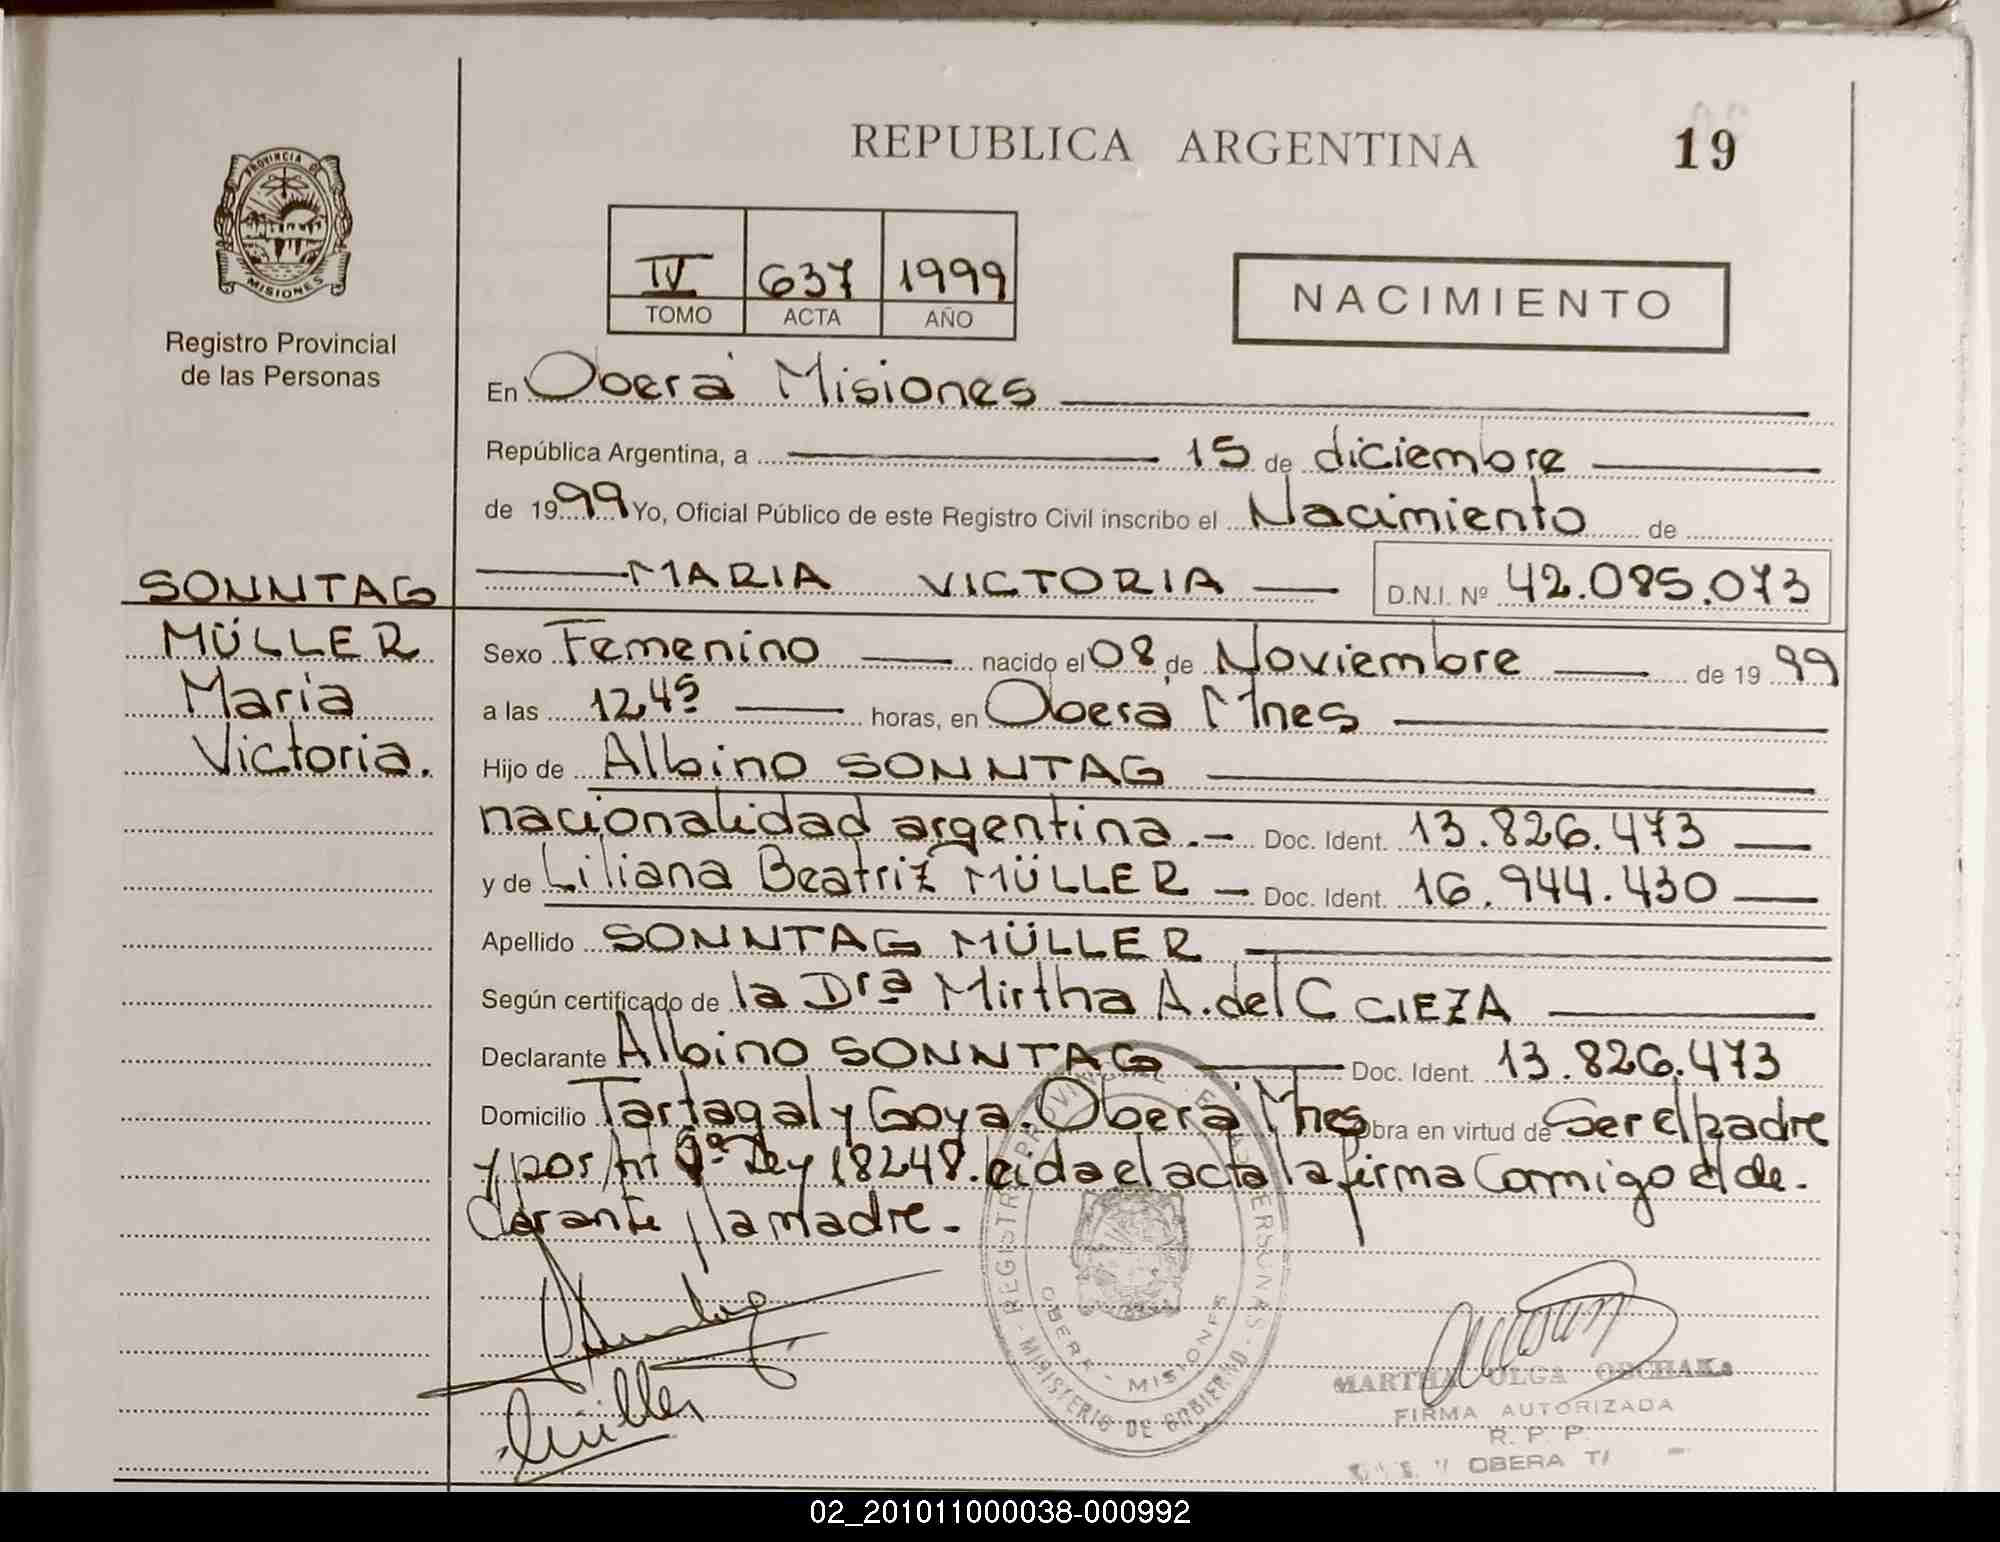 REPUBLICA ARGENTINA
19
PROVINCIA DE
MISIONES
Registro Provincial
de las Personas
IV 637 1999
TOMO ACTA AÑO
NACIMIENTO
En Oberá Misiones
República Argentina, a 15 de diciembre
de 1999 Yo, Oficial Público de este Registro Civil inscribo el Nacimiento de
MARIA VICTORIA D.N.I. Nº 42.085.073
SONNTAG
MÜLLER
Maria
Victoria.
Sexo Femenino nacido el 08 de Noviembre de 1999
a las 12,45 horas, en Oberá Mnes
Hijo de Albino SONNTAG
nacionalidad argentina.- Doc. Ident. 13.826.473
y de Liliana Beatriz MÜLLER - Doc. Ident. 16.944.430
Apellido SONNTAG MÜLLER
Según certificado de la Drª Mirtha A. del C CIEZA
Declarante Albino SONNTAG Doc. Ident. 13.826.473
Domicilio Tartagal y Goya. Oberá Mnes Obra en virtud de Ser el padre
y por Ley 18248. leida el acta la firma Conmigo el de.
clarante y la madre.-
Müller
REGISTRO PROVINCIAL DE LAS PERSONAS - MINISTERIO DE GOBIERNO -
OBERA - MISIONES
MARTHA OLGA
FIRMA AUTORIZADA
R. P. P.
OBERA
02_201011000038-000992